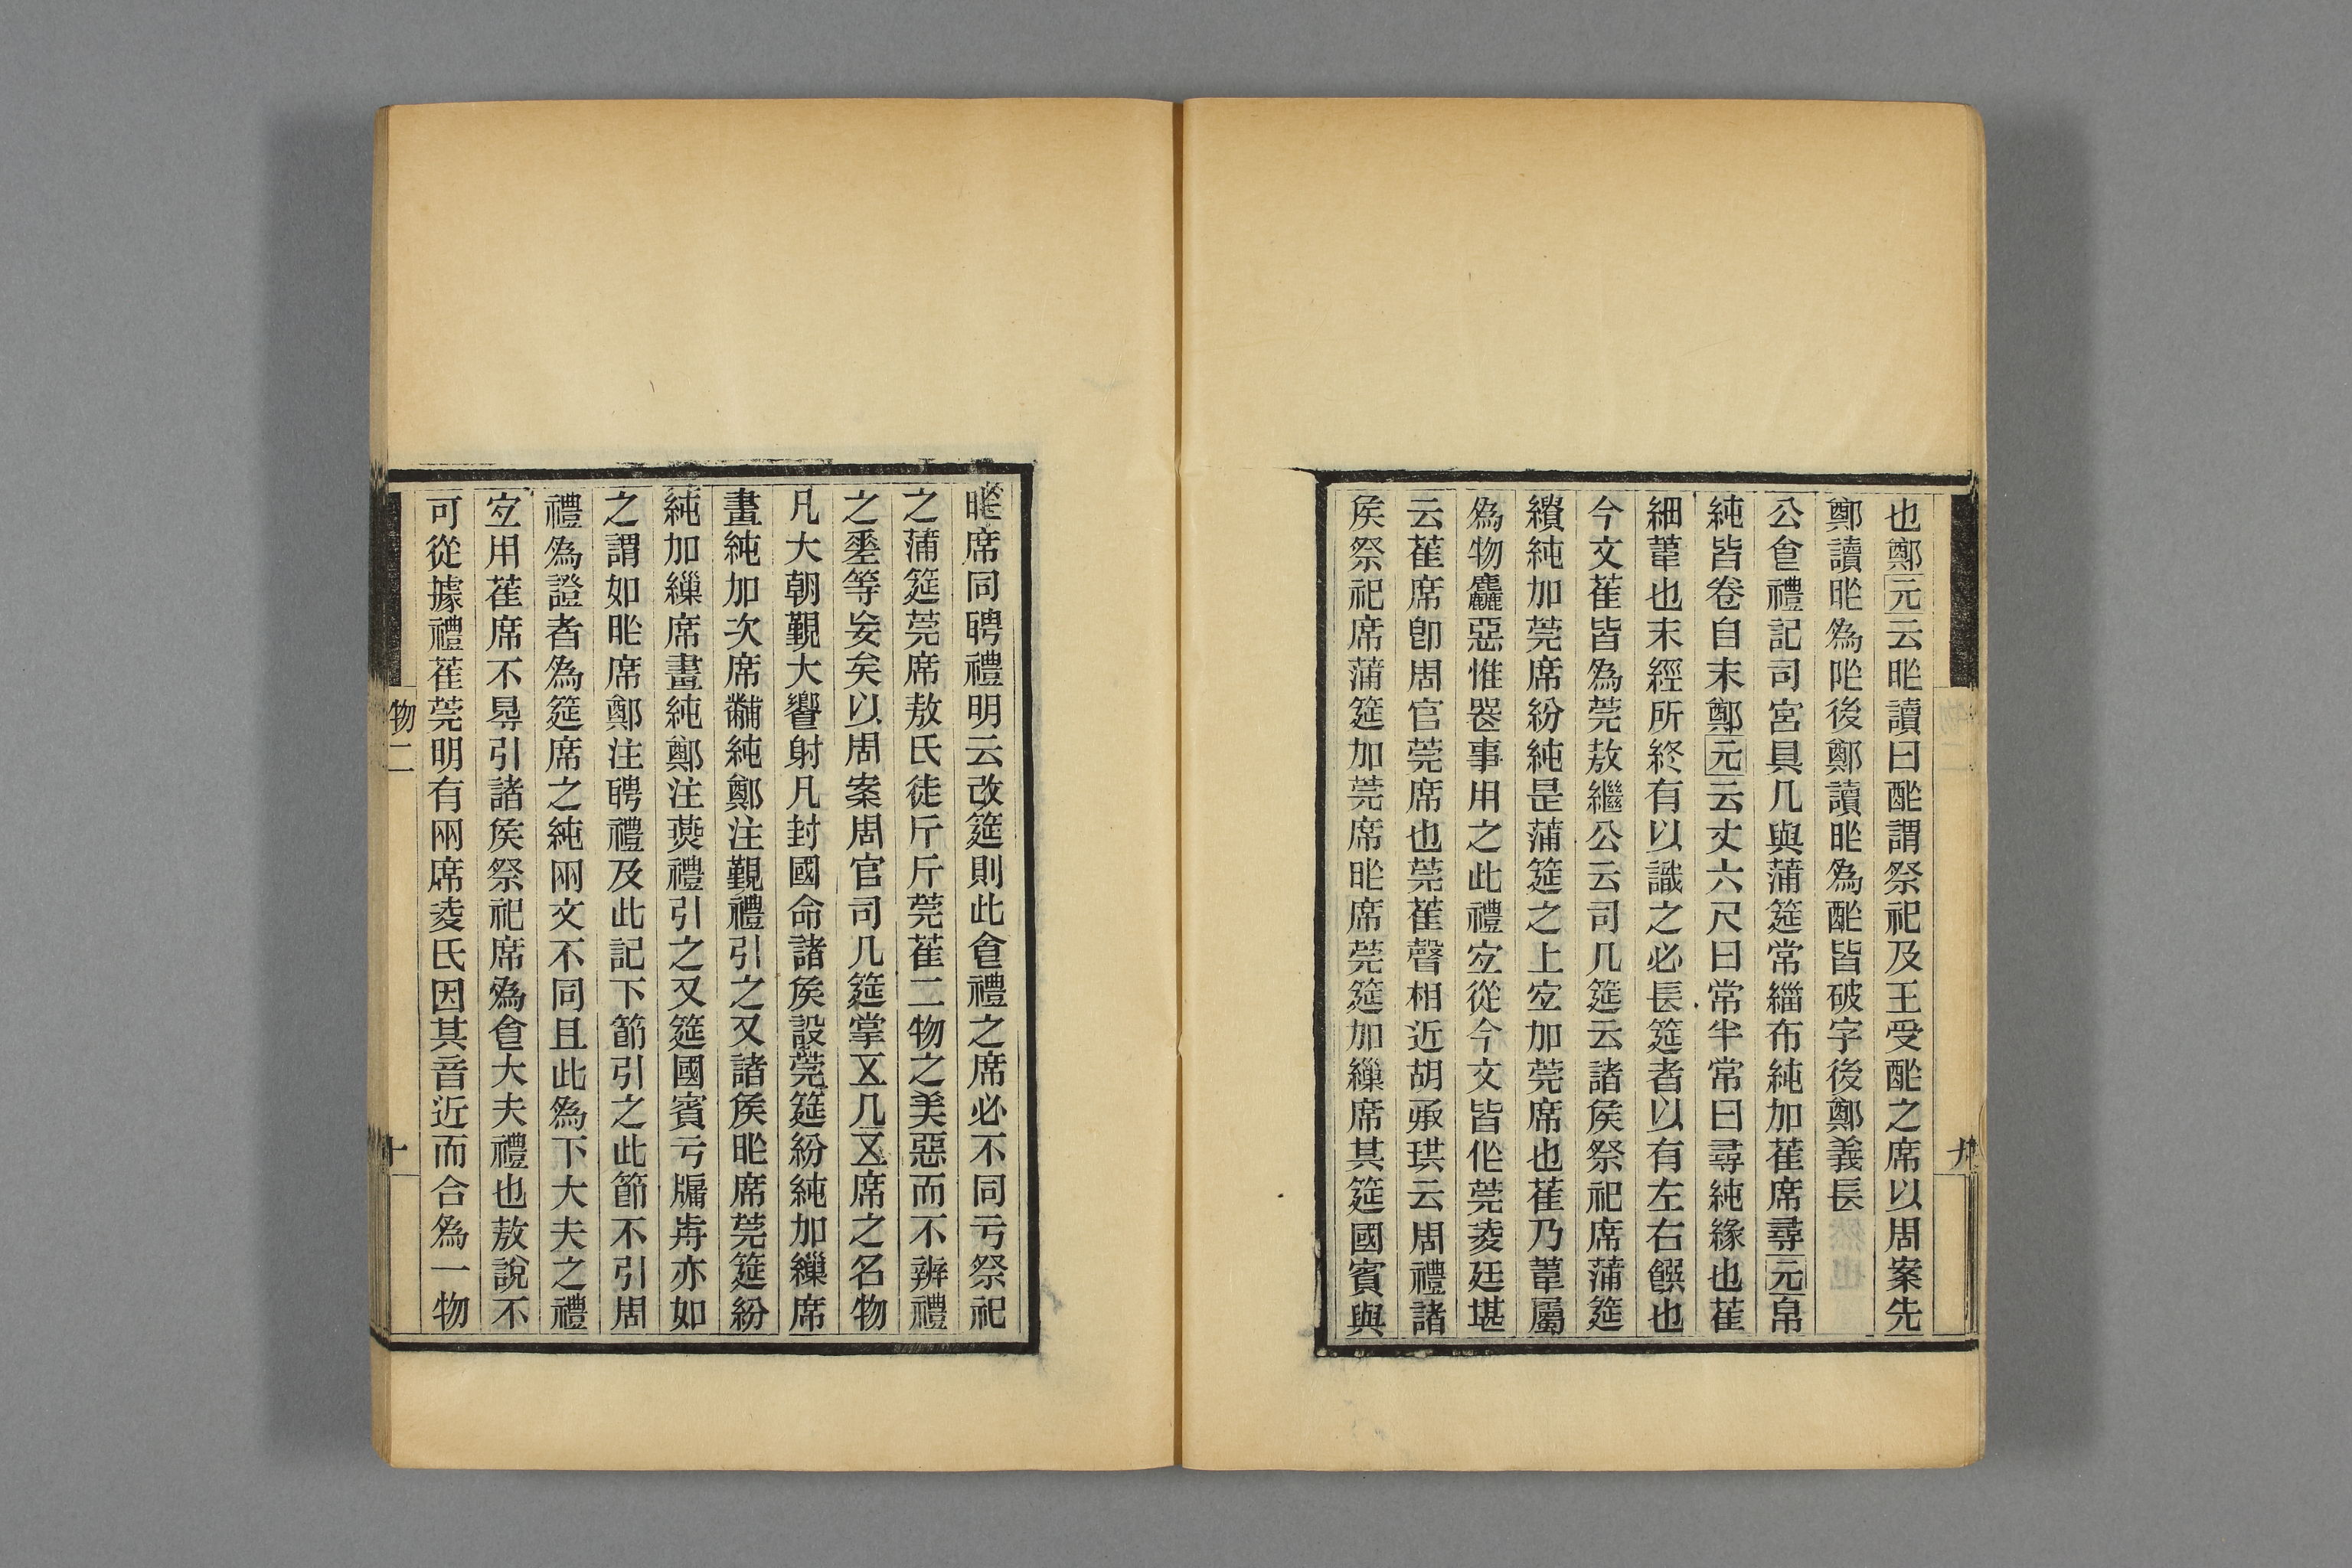 也鄭元云昨讀曰酢謂祭祀及王受酢之席以周案先
鄭讀昨爲阼後鄭讀昨爲酢皆破字後鄭義長
公食禮記司宮具几與蒲筵常緇布純加萑席尋元帛
純皆卷自末鄭元云丈六尺曰常半常曰尋純緣也萑
細葦也末經所終有以識之必長筵者以有左右饌也
今文萑皆爲莞敖繼公云司几筵云諸侯祭祀席蒲筵
繢純加莞席紛純是蒲筵之上宜加莞席也萑乃葦屬
爲物麤惡惟器事用之此禮宜從今文皆作莞夌廷堪
云萑席卽周官莞席也莞萑聲相近胡承珙云周禮諸
矦祭祀席蒲筵加莞席昨席莞筵加繅席其筵國賓與
昨席同聘禮明云改筵則此食禮之席必不同亏祭祀
之蒲筵莞席敖氏徒斤斤莞萑二物之美惡而不辨禮
之垩等妄矣以周案周官司几筵掌五几五席之名物
凡大朝覲大響射凡封國命諸矦設莞筵紛純加繅席
畫純加次席黼純鄭注覲禮引之又諸矦昨席莞筵紛
純加繅席畫純鄭注燕禮引之又筵國賓亏牖歬亦如
之謂如昨席鄭注聘禮及此記下節引之此節不引周
禮爲證者爲筵席之純兩文不同且此爲下大夫之禮
宜用萑席不㝵引諸矦祭祀席爲食大夫禮也敖說不
可從據禮萑莞明有兩席夌氏因其音近而合爲一物
物二
十